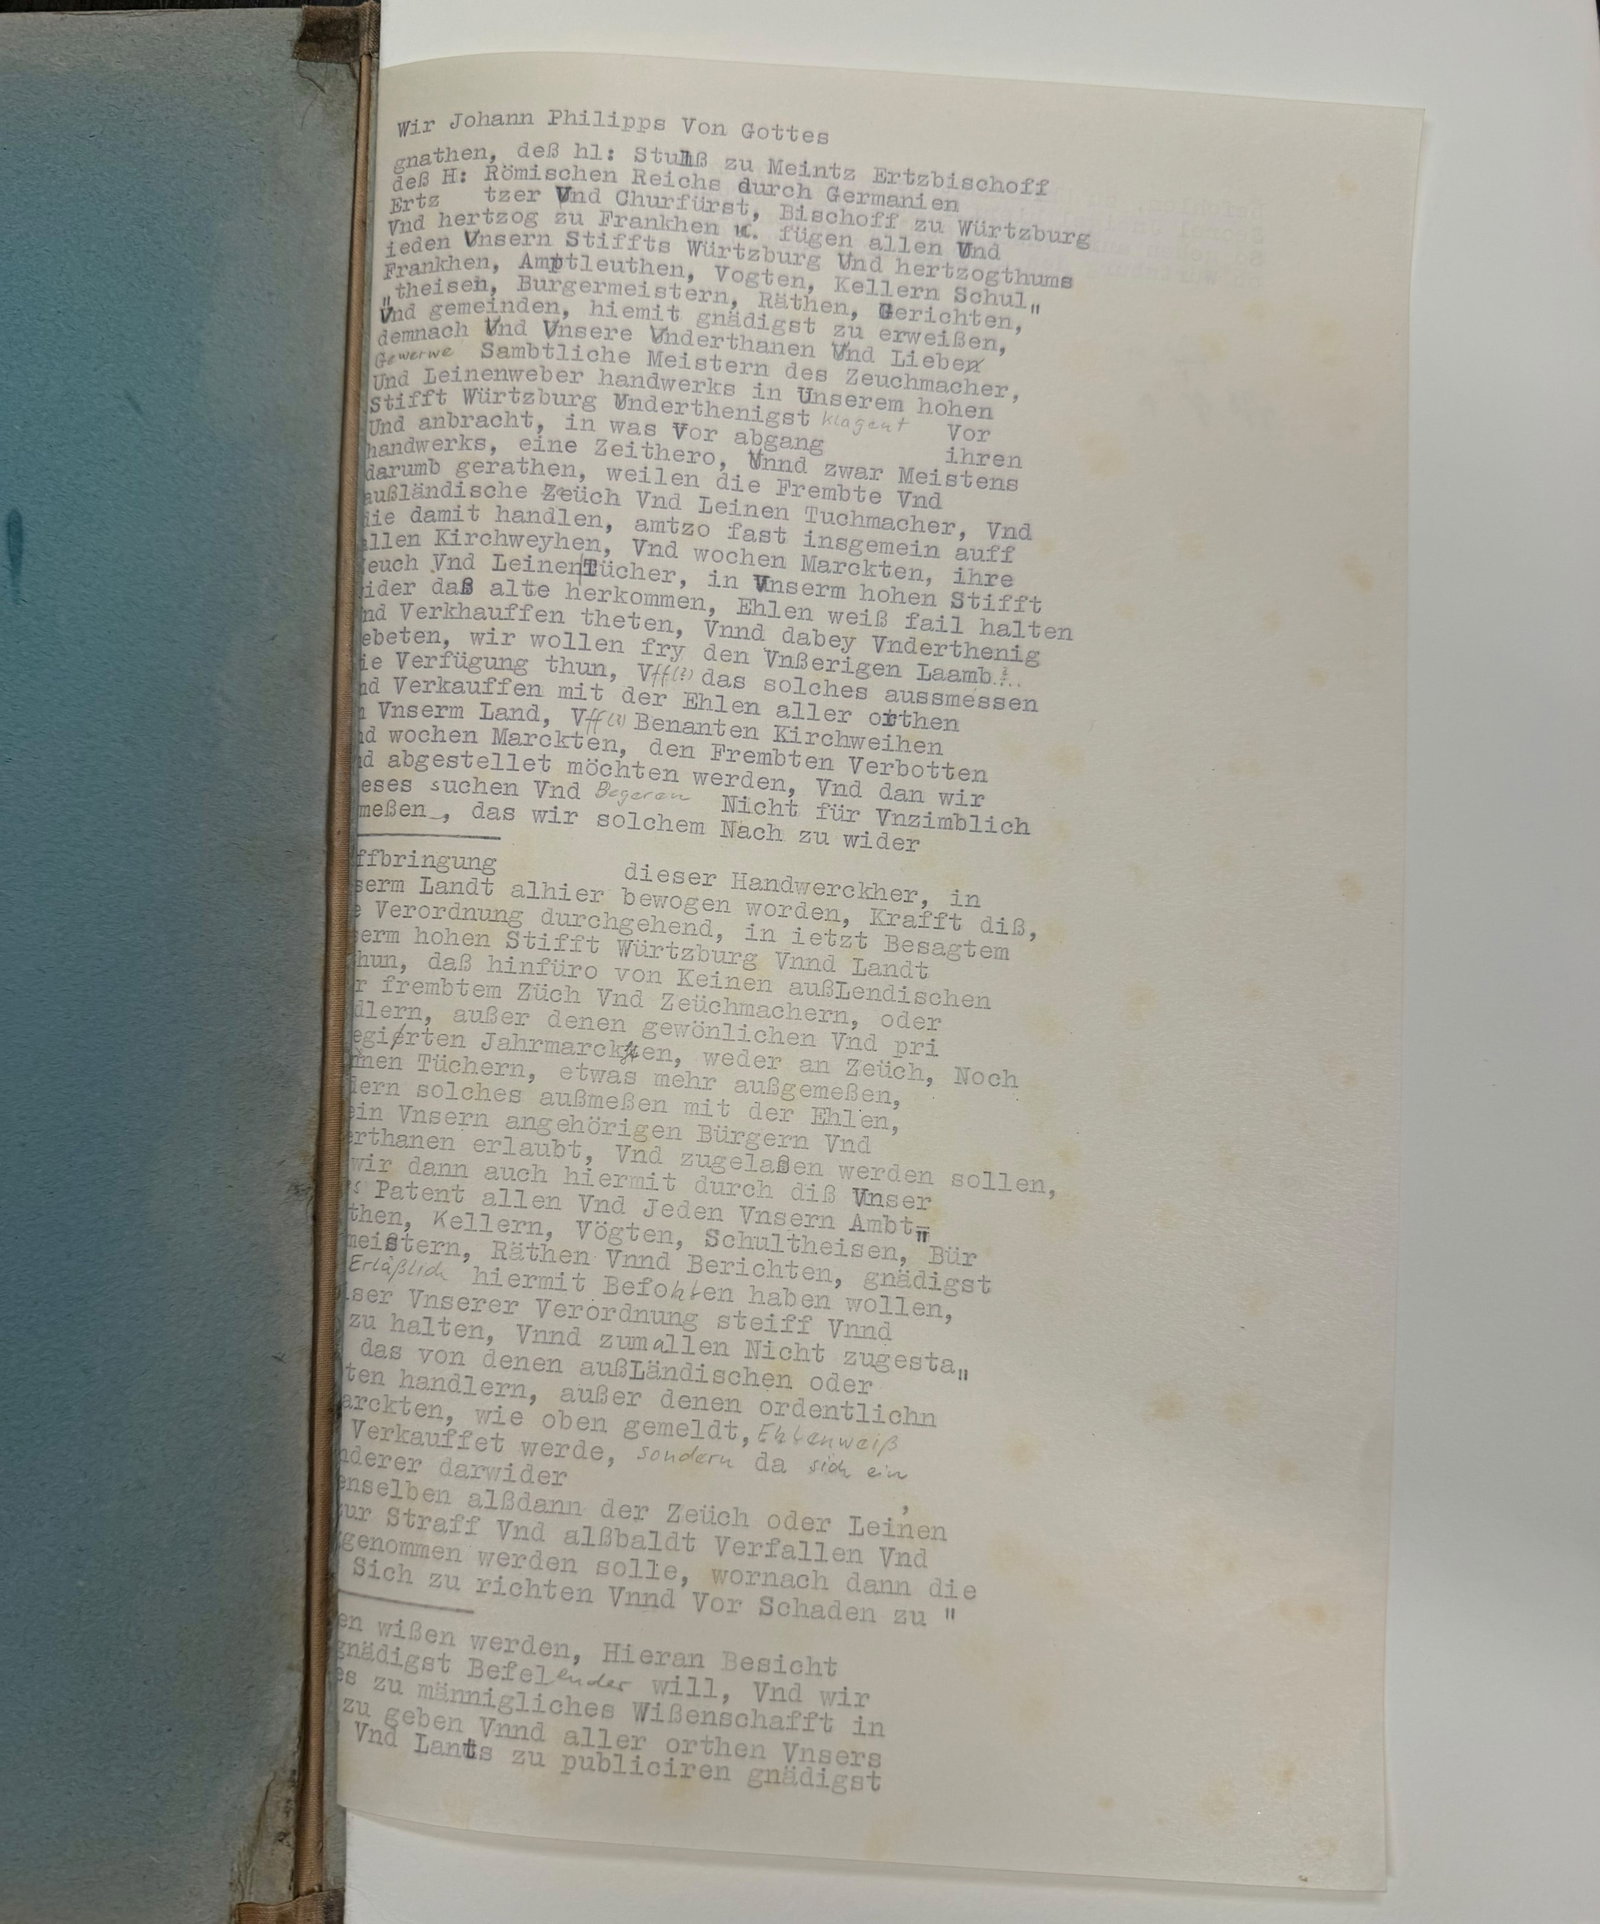 Wir Johann Philipps Von Gottes
gnathen, deß hl: zu Meintz Ertzbischoff
deß H: Römischen Reichs durch Germanien
Ertz tzer Vnd Churfürst, Bischoff zu Würtzburg
Vnd hertzog zu Frankhen fügen allen Und
ieden Unsern Stiffts Würtzburg Und hertzogthums
Frankhen, Amptleuthen, Vogten, Kellern Schul"
"theisen, Burgermeistern, Räthen, Gerichten,
Und gemeinden, hiemit gnädigst zu erweißen,
demnach Und Unsere Underthanen Und Lieben
Gewerwe Sambtliche Meistern des Zeuchmacher,
Und Leinenweber handwerks in Unserem hohen
Stifft Würtzburg Underthenigst klagent Vor
Und anbracht, in was vor abgang ihren
handwerks, eine Zeithero, Unnd zwar Meistens
darumb gerathen, weilen die Frembte Vnd
außländische Zeüch Vnd Leinen Tuchmacher, Vnd
die damit handlen, amtzo fast insgemein auff
allen Kirchweyhen, Vnd wochen Marckten, ihre
euch Vnd Leinen Tücher, in Unserm hohen Stifft
ider daß alte herkommen, Ehlen weiß fail halten
nd Verkhauffen theten, Vnnd dabey Vnderthenig
ebeten, wir wollen fry den Vnßerigen Laamb ?..
ie Verfügung thun, Vff(?) das solches aussmessen
nd Verkauffen mit der Ehlen aller orthen
n Vnserm Land, Vff(?) Benanten Kirchweihen
nd wochen Marckten, den Frembten Verbotten
nd abgestellet möchten werden, Vnd dan wir
eses suchen Vnd Begeren Nicht für Vnzimblich
meßen , das wir solchem Nach zu wider
ffbringung dieser Handwerckher, in
serm Landt alhier bewogen worden, Krafft diß,
e Verordnung durchgehend, in ietzt Besagtem
serm hohen Stifft Würtzburg Vnnd Landt
hun, daß hinfüro von Keinen außLendischen
r frembtem Züch Vnd Zeüchmachern, oder
dlern, außer denen gewönlichen Vnd pri
egirten Jahrmarckten, weder an Zeüch, Noch
nen Tüchern, etwas mehr außgemeßen,
dern solches außmeßen mit der Ehlen,
ein Vnsern angehörigen Bürgern Vnd
erthanen erlaubt, Vnd zugelaßen werden sollen,
wir dann auch hiermit durch diß Unser
s Patent allen Vnd Jeden Vnsern Ambt"
then, Kellern, Vögten, Schultheisen, Bür
meistern, Räthen Vnnd Berichten, gnädigst
Erläßlich hiermit Befohlen haben wollen,
iser Vnserer Verordnung steiff Vnnd
zu halten, Vnnd zumallen Nicht zugesta"
das von denen außLändischen oder
ten handlern, außer denen ordentlichn
arckten, wie oben gemeldt, Ehlenweiß
Verkauffet werde, sondern da sich ein
nderer darwider ,
enselben alßdann der Zeüch oder Leinen
ur Straff Vnd alßbaldt Verfallen Vnd
genommen werden solle, wornach dann die
Sich zu richten Vnnd Vor Schaden zu "
en wißen werden, Hieran Besicht
gnädigst Befelender will, Vnd wir
es zu männigliches Wißenschafft in
zu geben Vnnd aller orthen Vnsers
Vnd Lants zu publiciren gnädigst